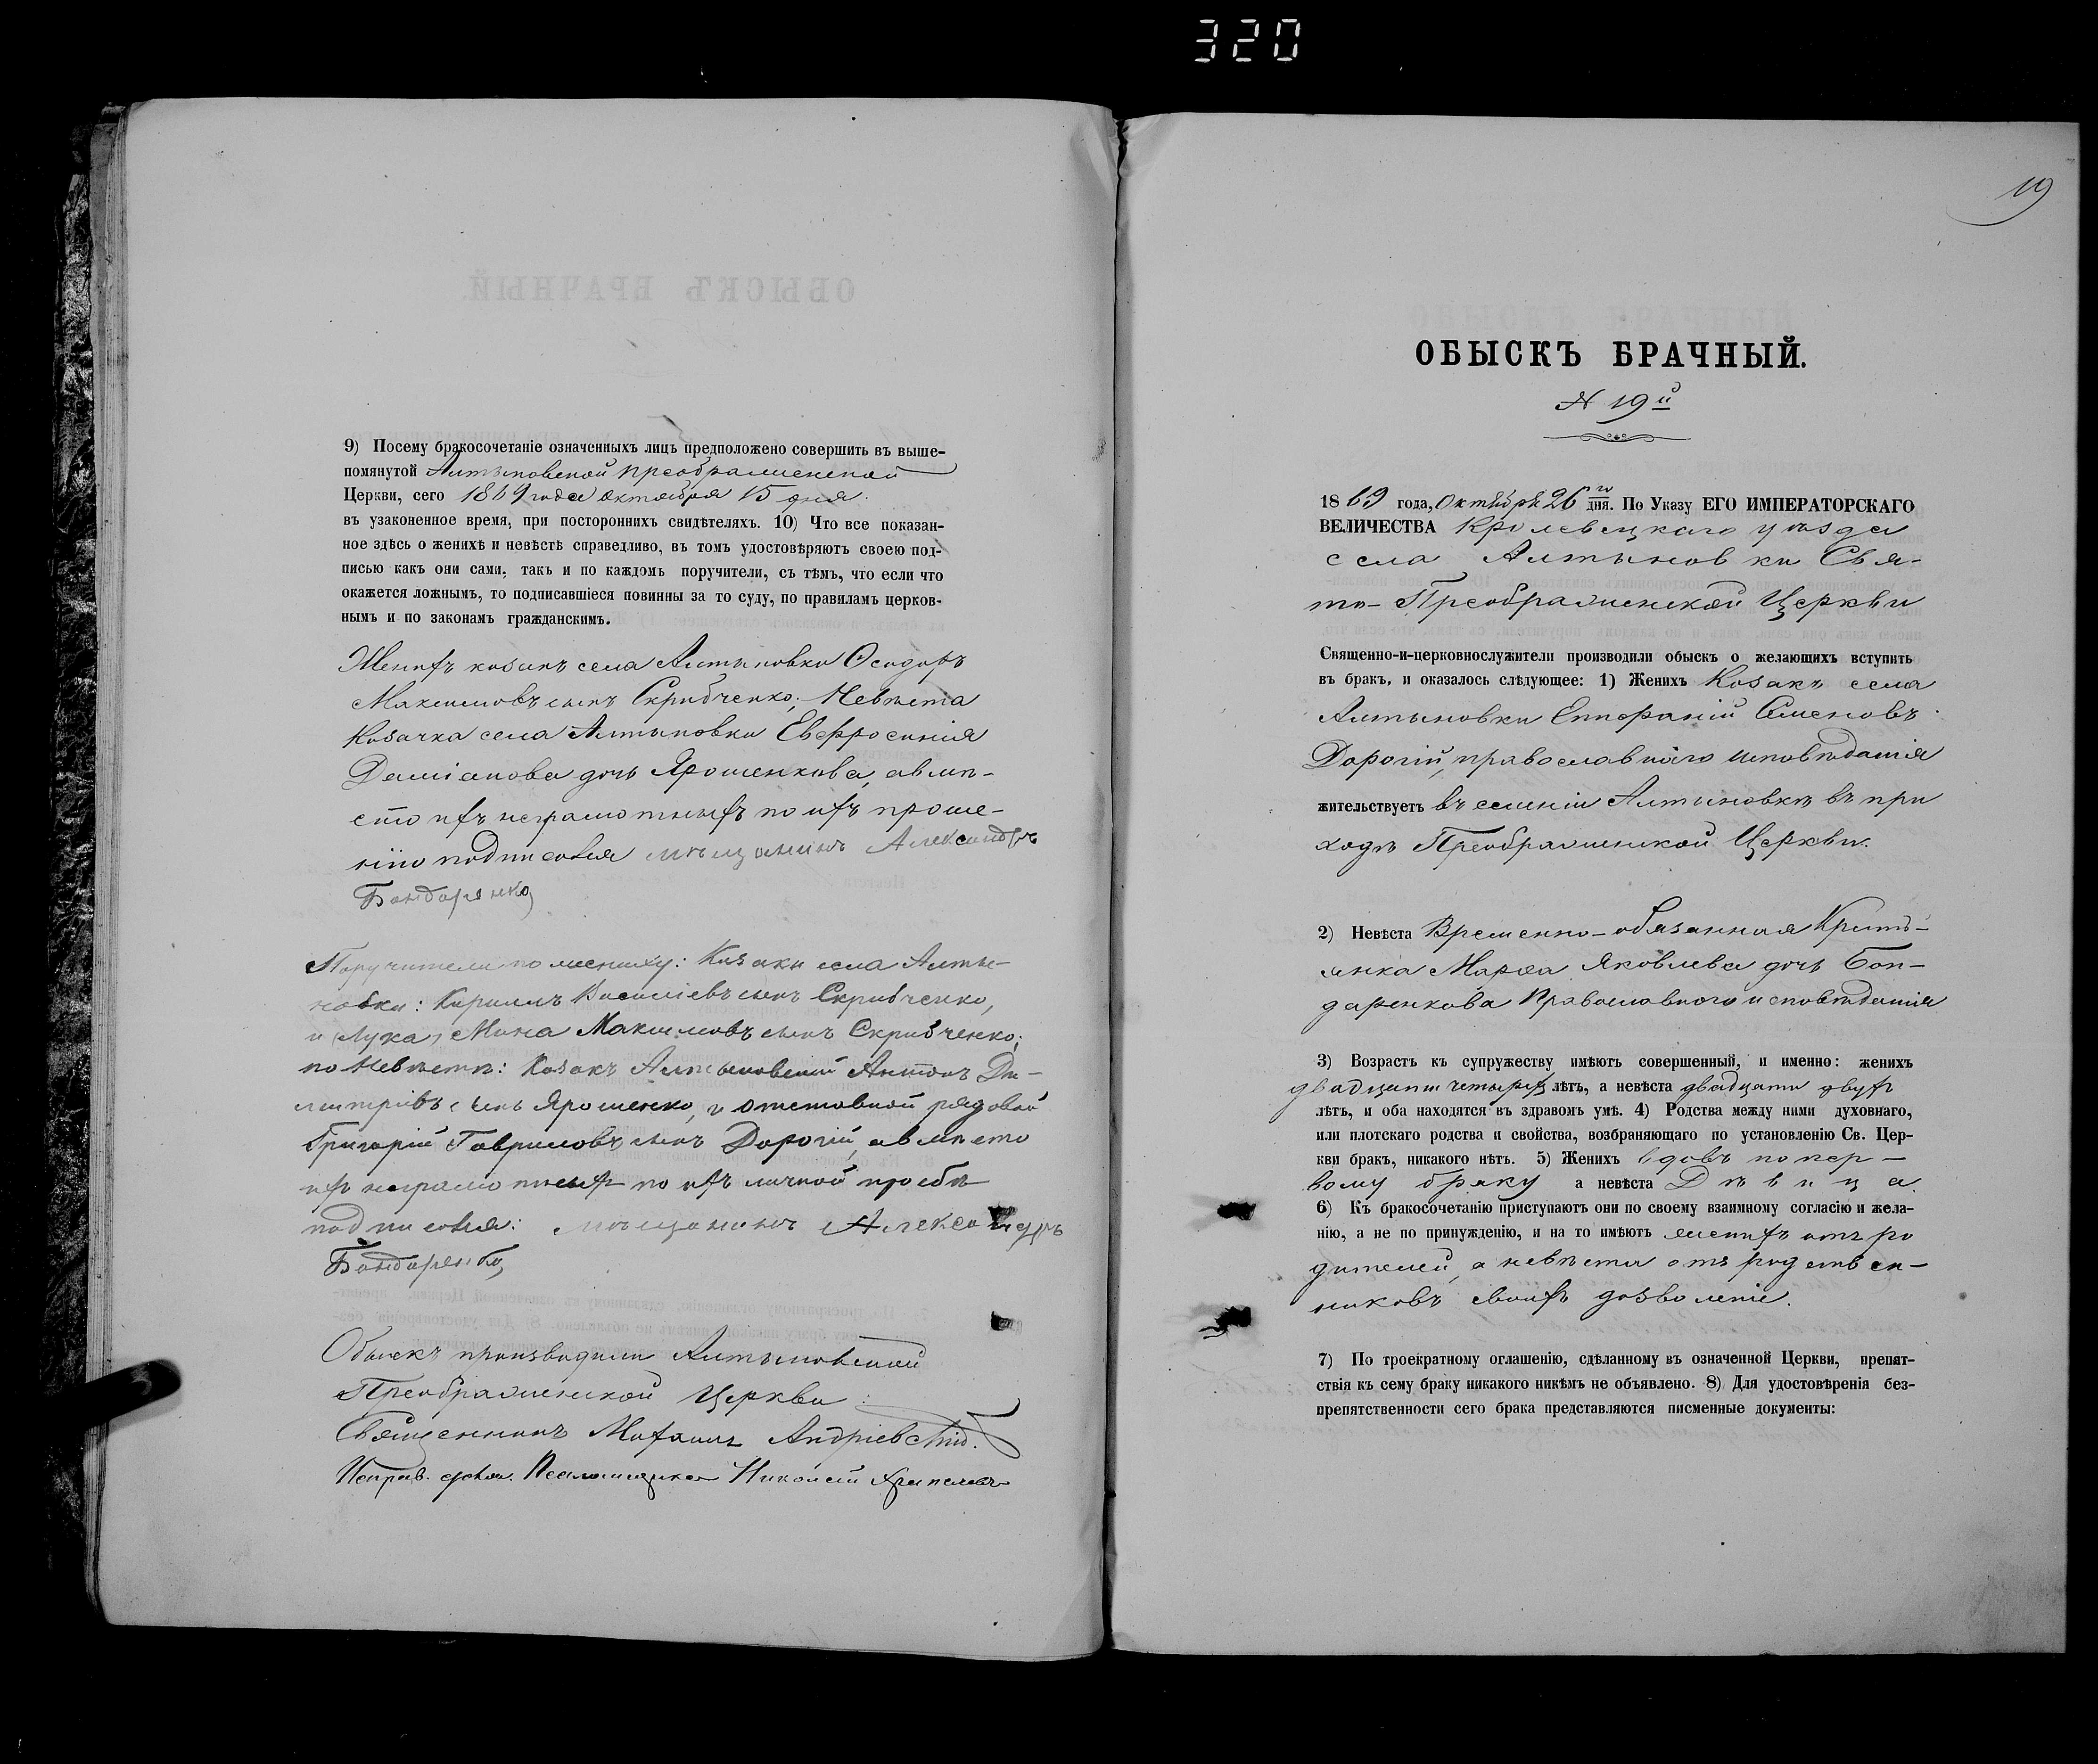 320
9) Посему бракосочетаніе означенныхъ лицъ предположено совершить въ выше-
помянутой Алтыновской преображенской
Церкви, сего 1869 года октября 15 дня.
въ узаконенное время, при постороннихъ свидѣтеляхъ. 10) Что все показан-
ное здѣсь о женихѣ и невѣстѣ справедливо, въ томъ удостовѣряютъ своею под-
писью какъ они сами, такъ и по каждомъ поручители, съ тѣмъ, что если что
окажется ложнымъ, то подписавшіеся повинны за то суду, по правиламъ церков-
нымъ и по законамъ гражданскимъ.
Женихъ козакъ села Алтыновки Ѳеодоръ
Максимовъ сынъ Скрибченко; Невѣста
Козачка села Алтыновки Евфросинія
Даміанова дочь Ярошенкова, а вмѣ-
сто ихъ неграмотныхъ по ихъ проше-
нію подписався мѣщанинъ Александръ
Бондоренко
Поручители по жениху: Козаки села Алты-
новки: Кириллъ Василіевъ сынъ Скрибченко,
и (Лука) Мина Максимовъ сынъ Скрибченко;
по Невѣстѣ: Козакъ Алтыновскій Антонъ Ди-
митріевъ сынъ Ярошенко, и отставной рядовой
Григорій Гавриловъ сынъ Дорогій, а вмѣсто
ихъ неграмотныхъ по ихъ личной просьбѣ
подписався: мѣщанинъ Александръ
Бондоренко,
Обыскъ производили Алтыновской
Преображенской Церкви:
Священникъ Михаилъ Андріевскій.
Исправ. долж. Псаломщика Николай
19
ОБЫСКЪ БРАЧНЫЙ.
N 19й
1869 года, Октября 26го дня. По Указу ЕГО ИМПЕРАТОРСКАГО
ВЕЛИЧЕСТВА Кролевецкаго уѣзда
села Алтыновки Свя-
то-Преображенской Церкви
Священно-и-церковнослужители производили обыскъ о желающихъ вступить
въ бракъ, и оказалось слѣдующее: 1) Женихъ Козакъ села
Алтыновки Епифаній Семеновъ
Дорогій, православнаго исповѣданія
жительствуетъ въ селеніи Алтыновкѣ въ при
ходѣ Преображенской Церкви.
2) Невѣста Временно-обязанная Кресть-
янка Марѳа Яковлева дочь Бон-
даренкова Православного исповѣданія
3) Возрастъ къ супружеству имѣютъ совершенный, и именно: женихъ
двадцати четырехъ лѣтъ, а невѣста двадцати двухъ
лѣтъ, и оба находятся въ здравомъ умѣ. 4) Родства между ними духовнаго,
или плотскаго родства и свойства, возбраняющаго по установленію Св. Цер-
кви бракъ, никакого нѣтъ. 5) Женихъ вдовъ по пер-
вому браку а невѣста Дѣвица.
6) Къ бракосочетанію приступаютъ они по своему взаимному согласію и жела-
нію, а не по принужденію, и на то имѣютъ женихъ отъ ро
дителей, а невѣста отъ родствен-
никовъ своихъ дозволеніе.
7) По троекратному оглашенію, сдѣланному въ означенной Церкви, препят-
ствія къ сему браку никакого никѣмъ не объявлено. 8) Для удостовѣренія без-
препятственности сего брака представляются писменные документы: